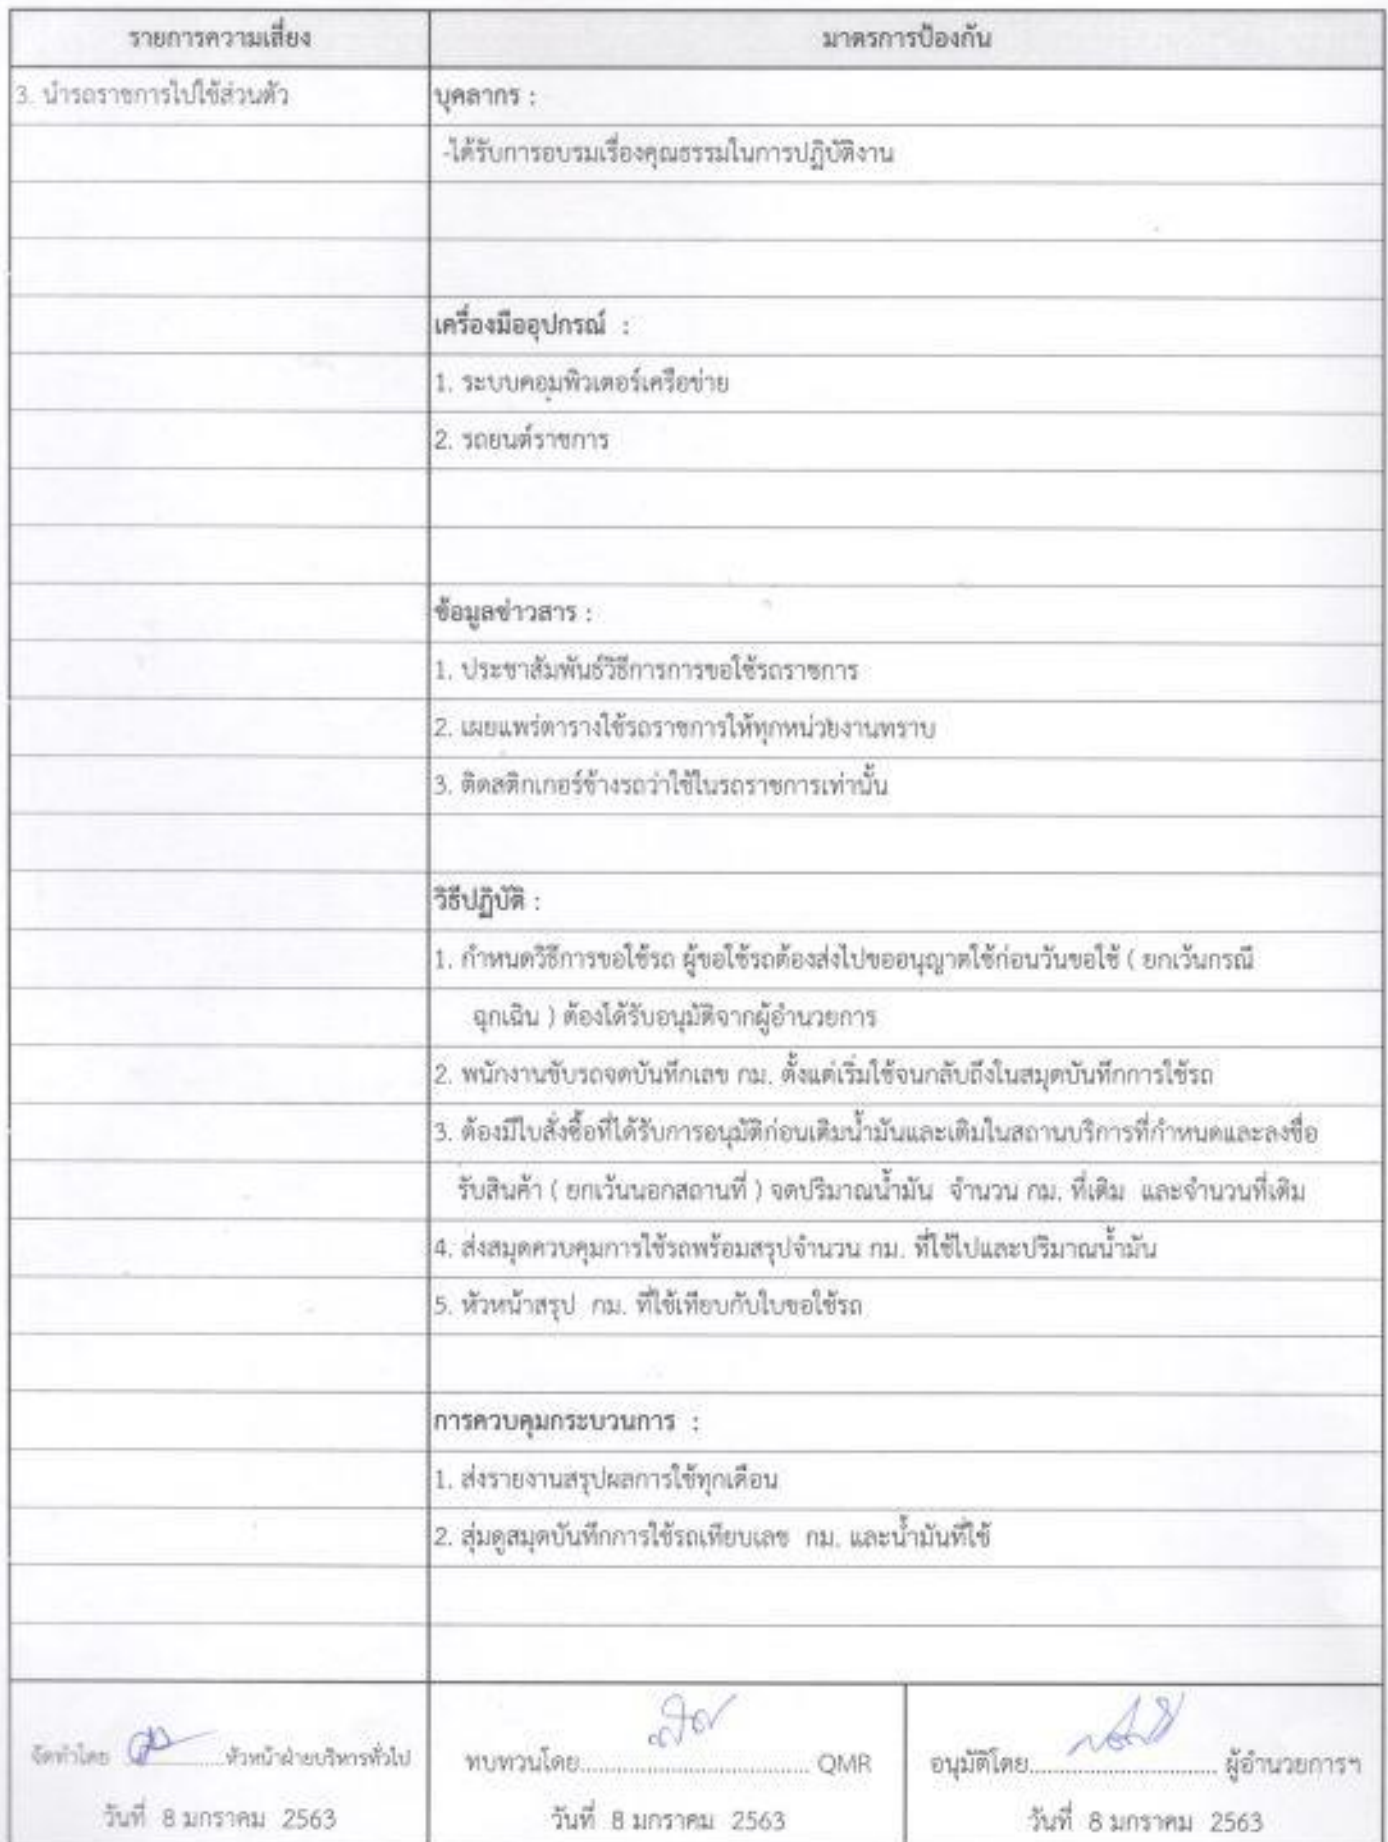 รายการความเสี่ยง มาตรการป้องกัน
3. นำรถราชการไปใช้ส่วนตัว บุคลากร :
-ได้รับการอบรมเรื่องคุณธรรมในการปฏิบัติงาน
เครื่องมืออุปกรณ์ :
1. ระบบคอมพิวเตอร์เครือข่าย
2. รถยนต์ราชการ
ข้อมูลข่าวสาร :
1. ประชาสัมพันธ์วิธีการการขอใช้รถราชการ
2. เผยแพร่ตารางใช้รถราชการให้ทุกหน่วยงานทราบ
3. ติดสติกเกอร์ข้างรถว่าใช้ในรถราชการเท่านั้น
วิธีปฏิบัติ :
1. กำหนดวิธีการขอใช้รถ ผู้ขอใช้รถต้องส่งใบขออนุญาตใช้ก่อนวันขอใช้ ( ยกเว้นกรณี
ฉุกเฉิน ) ต้องได้รับอนุมัติจากผู้อำนวยการ
2. พนักงานขับรถจดบันทึกเลข กม. ตั้งแต่เริ่มใช้จนกลับถึงในสมุดบันทึกการใช้รถ
3. ต้องมีใบสั่งซื้อที่ได้รับการอนุมัติก่อนเติมน้ำมันและเติมในสถานบริการที่กำหนดและลงชื่อ
รับสินค้า ( ยกเว้นนอกสถานที่ ) จดปริมาณน้ำมัน จำนวน กม. ที่เติม และจำนวนที่เติม
4. ส่งสมุดควบคุมการใช้รถพร้อมสรุปจำนวน กม. ที่ใช้ไปและปริมาณน้ำมัน
5. หัวหน้าสรุป กม. ที่ใช้เทียบกับใบขอใช้รถ
การควบคุมกระบวนการ :
1. ส่งรายงานสรุปผลการใช้ทุกเดือน
2. สุ่มดูสมุดบันทึกการใช้รถเทียบเลข กม. และน้ำมันที่ใช้
จัดทำโดย ....................หัวหน้าฝ่ายบริหารทั่วไป ทบทวนโดย.................................... QMR อนุมัติโดย............................. ผู้อำนวยการฯ
วันที่ 8 มกราคม 2563 วันที่ 8 มกราคม 2563 วันที่ 8 มกราคม 2563